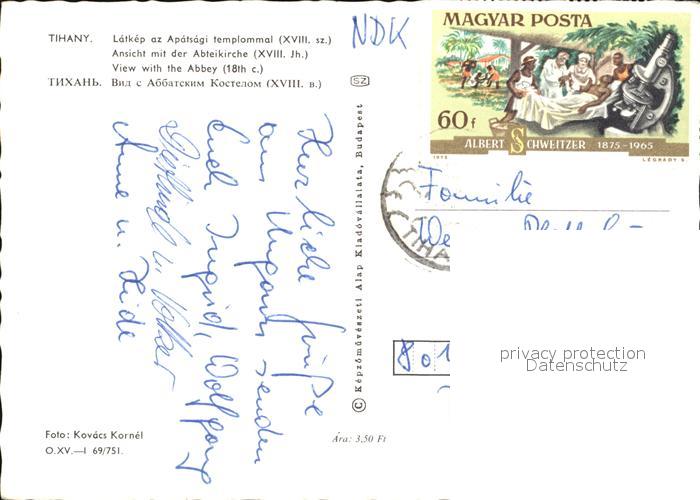 TIHANY. Látkép az Apátsági templommal (XVIII. sz.)
Ansicht mit der Abteikirche (XVIII. Jh.)
View with the Abbey (18th c.)
ТИХАНЬ. Вид с Аббатским Костелом (XVIII. в.)
NDK
MAGYAR POSTA
60f
ALBERT SCHWEITZER 1875-1965
1975 LÉGRÁDY S.
SZ
© Képzőművészeti Alap Kiadóvállalata, Budapest
Herzliche Grüße
aus Ungarn senden
Euch Ingrid, Wolfgang
u. Volker
Anne u. Heide
Familie
We
TIHA
801
privacy protection
Datenschutz
Foto: Kovács Kornél
O.XV.—I 69/751.
Ára: 3,50 Ft